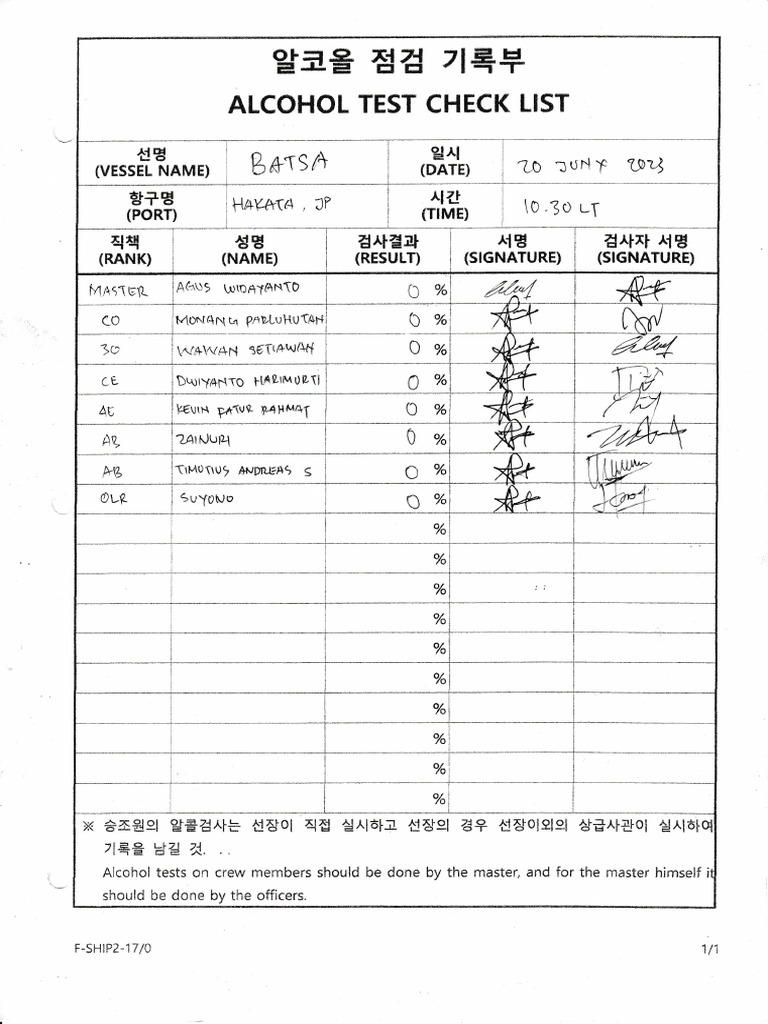 알코올 점검 기록부
ALCOHOL TEST CHECK LIST
선명 (VESSEL NAME) BATSA 일시 (DATE) 20 JUNY 2023
항구명 (PORT) HAKATA, JP 시간 (TIME) 10.30 LT
직책 (RANK) 성명 (NAME) 검사결과 (RESULT) 서명 (SIGNATURE) 검사자 서명 (SIGNATURE)
MASTER AGUS WIDAYANTO 0 %
CO MONANG PARLUHUTAN 0 %
3O WAWAN SETIAWAN 0 %
CE DWIYANTO HARIMURTI 0 %
4E KEVIN FATUR RAHMAT 0 %
AB ZAINURI 0 %
AB TIMOTIUS ANDREAS S 0 %
OLR SUYONO 0 %
%
%
%
%
%
%
%
%
%
%
※ 승조원의 알콜검사는 선장이 직접 실시하고 선장의 경우 선장이외의 상급사관이 실시하여
기록을 남길 것.
Alcohol tests on crew members should be done by the master, and for the master himself it
should be done by the officers.
F-SHIP2-17/0 1/1